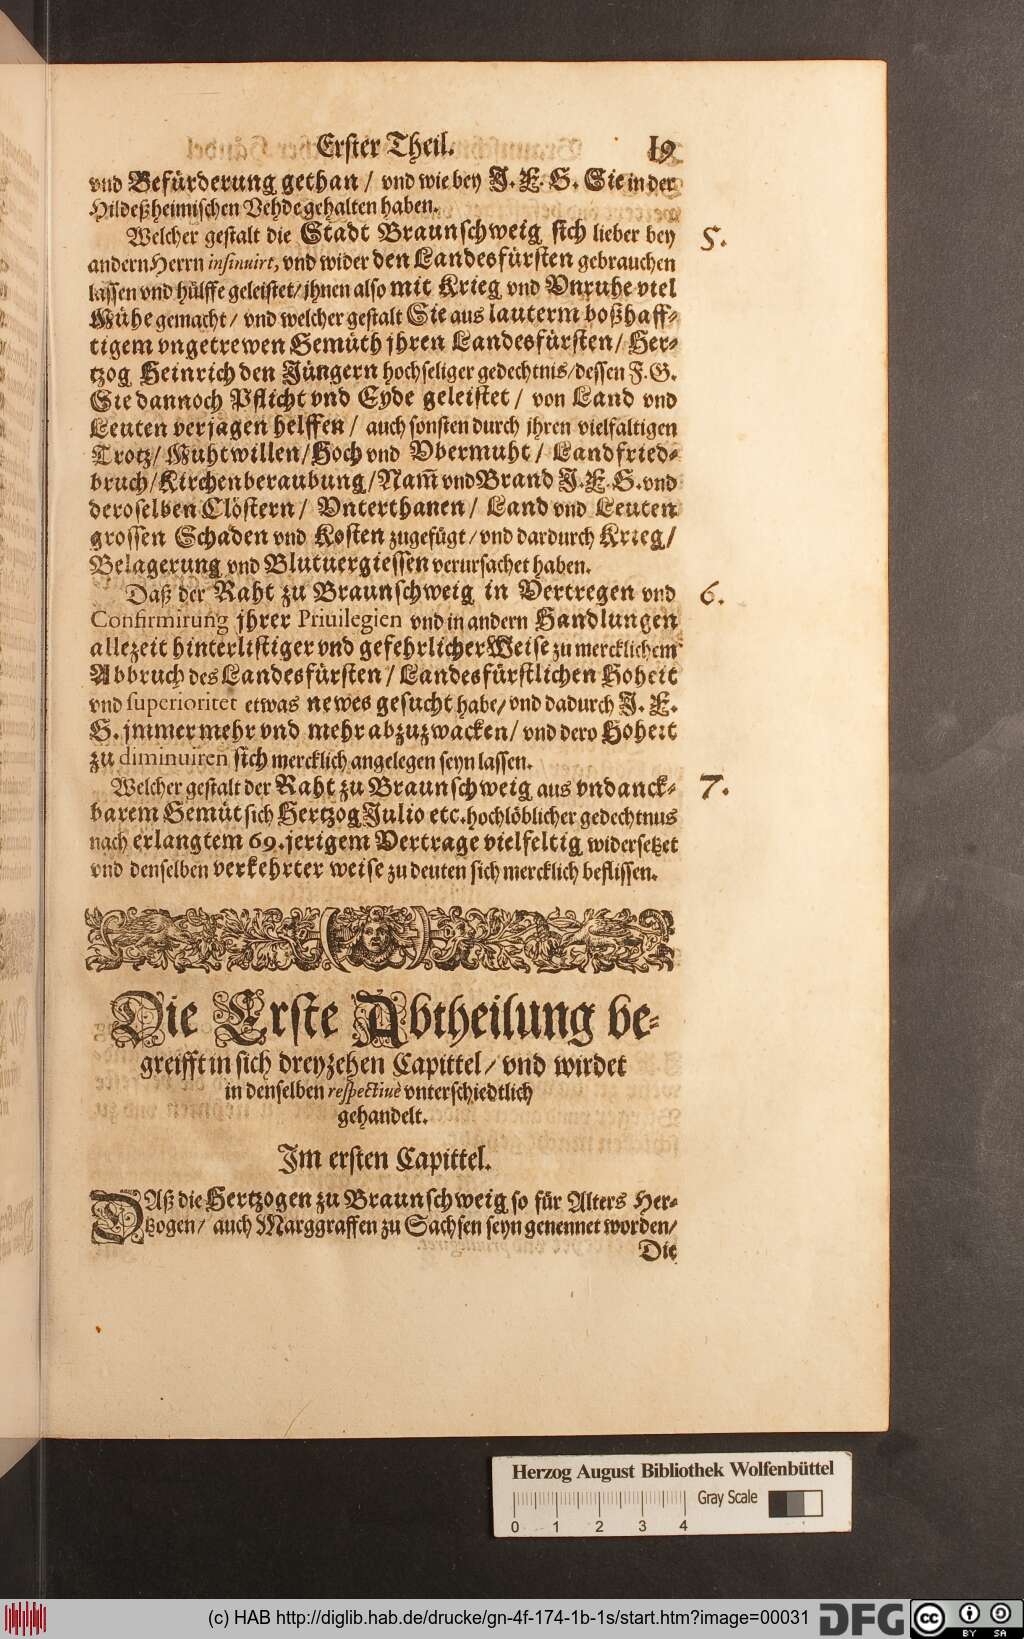 Erster Theil. 19
vnd Befürderung gethan / vnd wie bey J. F. G. Sie in der
Hildeßheimischen Vehde gehalten haben.
Welcher gestalt die Stadt Braunschweig sich lieber bey 5.
andern Herrn insinuirt, vnd wider den Landesfürsten gebrauchen
lassen vnd hülffe geleistet/ jhnen also mit Krieg vnd Vnruhe viel
Mühe gemacht / vnd welcher gestalt Sie aus lauterm boßhaff-
tigem vngetrewen Gemüth jhren Landesfürsten / Her-
tzog Heinrich den Jüngern hochseliger gedechtnis/ dessen F. G.
Sie dannoch Pflicht vnd Eyde geleistet / von Land vnd
Leuten verjagen helffen / auch sonsten durch jhren vielfaltigen
Trotz/ Muhtwillen/ Hoch vnd Vbermuht / Landfried-
bruch/ Kirchenberaubung/ Nam̃ vnd Brand J. F. G. vnd
deroselben Clöstern / Vnterthanen / Land vnd Leuten
grossen Schaden vnd Kosten zugefügt / vnd dardurch Krieg /
Belagerung vnd Blutuergiessen verursachet haben.
Daß der Raht zu Braunschweig in Vertregen vnd 6.
Confirmirung jhrer Priuilegien vnd in andern Handlungen
allezeit hinterlistiger vnd gefehrlicher Weise zu mercklichem
Abbruch des Landesfürsten / Landesfürstlichen Hoheit
vnd superioritet etwas newes gesucht habe/ vnd dadurch J. F.
G. jmmer mehr vnd mehr abzuzwacken / vnd dero Hoheit
zu diminuiren sich mercklich angelegen seyn lassen.
Welcher gestalt der Raht zu Braunschweig aus vndanck- 7.
barem Gemüt sich Hertzog Julio etc. hochlöblicher gedechtnus
nach erlangtem 69. jerigem Vertrage vielfeltig widersetzet
vnd denselben verkehrter weise zu deuten sich mercklich beflissen.
Die Erste Abtheilung be-
greifft in sich dreyzehen Capittel / vnd wirdet
in denselben respectiuè vnterschiedtlich
gehandelt.
Im ersten Capittel.
DAß die Hertzogen zu Braunschweig so für Alters Her-
tzogen / auch Marggraffen zu Sachsen seyn genennet worden /
Die
Herzog August Bibliothek Wolfenbüttel
Gray Scale
0 1 2 3 4
(c) HAB http://diglib.hab.de/drucke/gn-4f-174-1b-1s/start.htm?image=00031 DFG cc BY SA